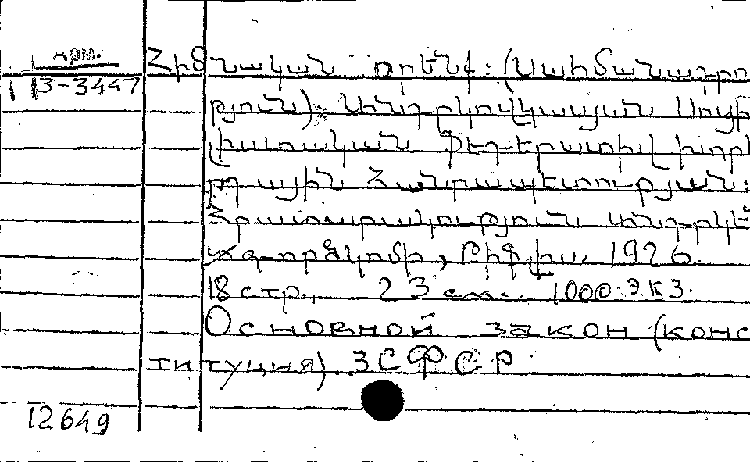 арм.
Հիմնական օրենք: (Սահմանադրո
13-3447
թյուն): Անդրկովկասյան Սոցի
լիստական Ֆեդերատիվ խորհ
րդային Հանրապետության:
Հրատարակություն Անդրկե
, Թիֆլիս. 1926.
18 стр., 23 см. 1000 экз.
Основной закон (конс
титуция) ЗСФСР
12649